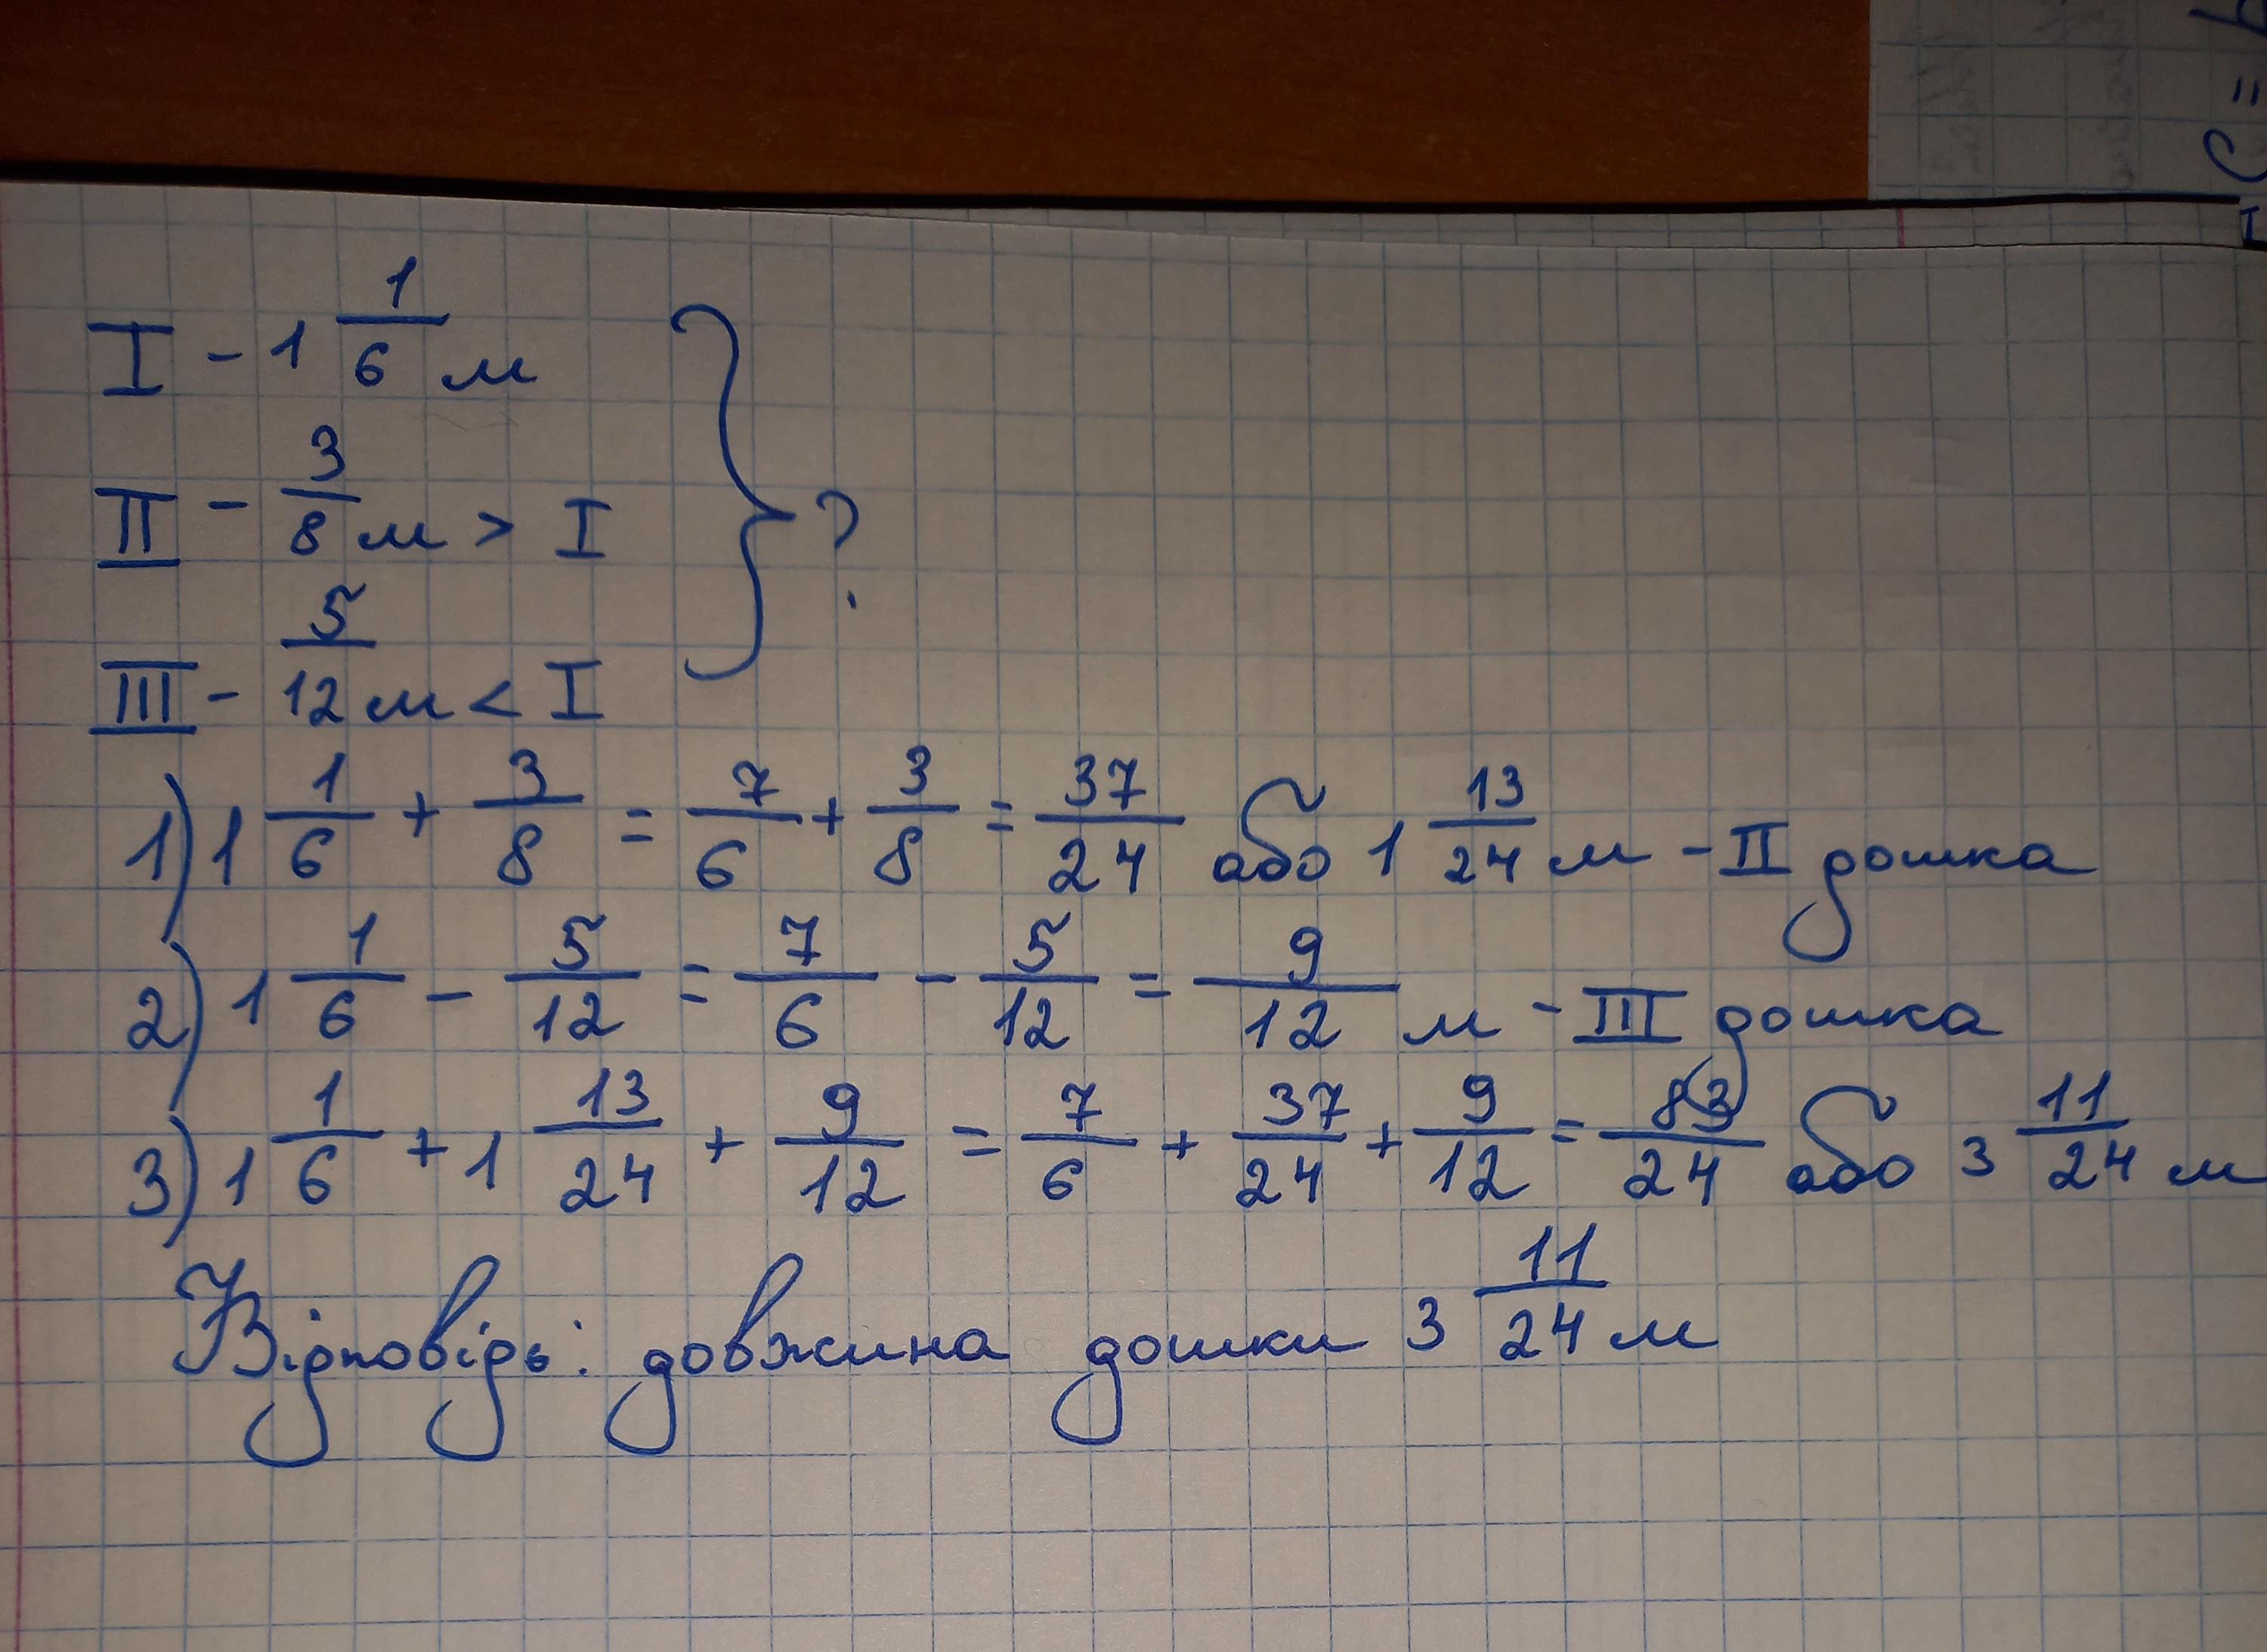 C =
I - 1 1/6 м
II - 3/8 м > I
III - 5/12 м < I
?
1) 1 1/6 + 3/8 = 7/6 + 3/8 = 37/24 або 1 13/24 м - II дошка
2) 1 1/6 - 5/12 = 7/6 - 5/12 = 9/12 м - III дошка
3) 1 1/6 + 1 13/24 + 9/12 = 7/6 + 37/24 + 9/12 = 83/24 або 3 11/24 м
Відповідь: довжина дошки 3 11/24 м